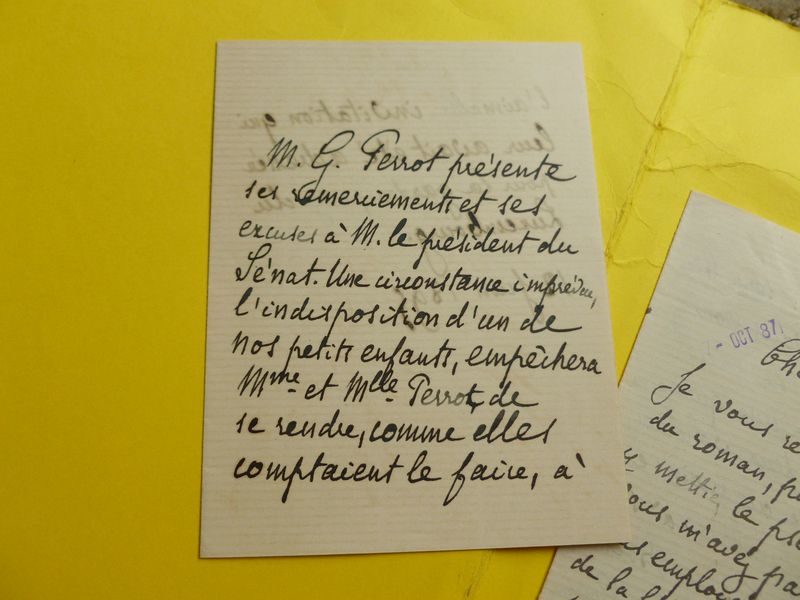 M. G. Perrot présente
ses remerciements et ses
excuses à M. le président du
Sénat. Une circonstance imprévue,
l'indisposition d'un de
nos petits enfants, empêchera
Mme et Mlle Perrot, de
se rendre, comme elles
comptaient le faire, à
- OCT 87
Je vous
du roman,
le
Vous m'avez
de la